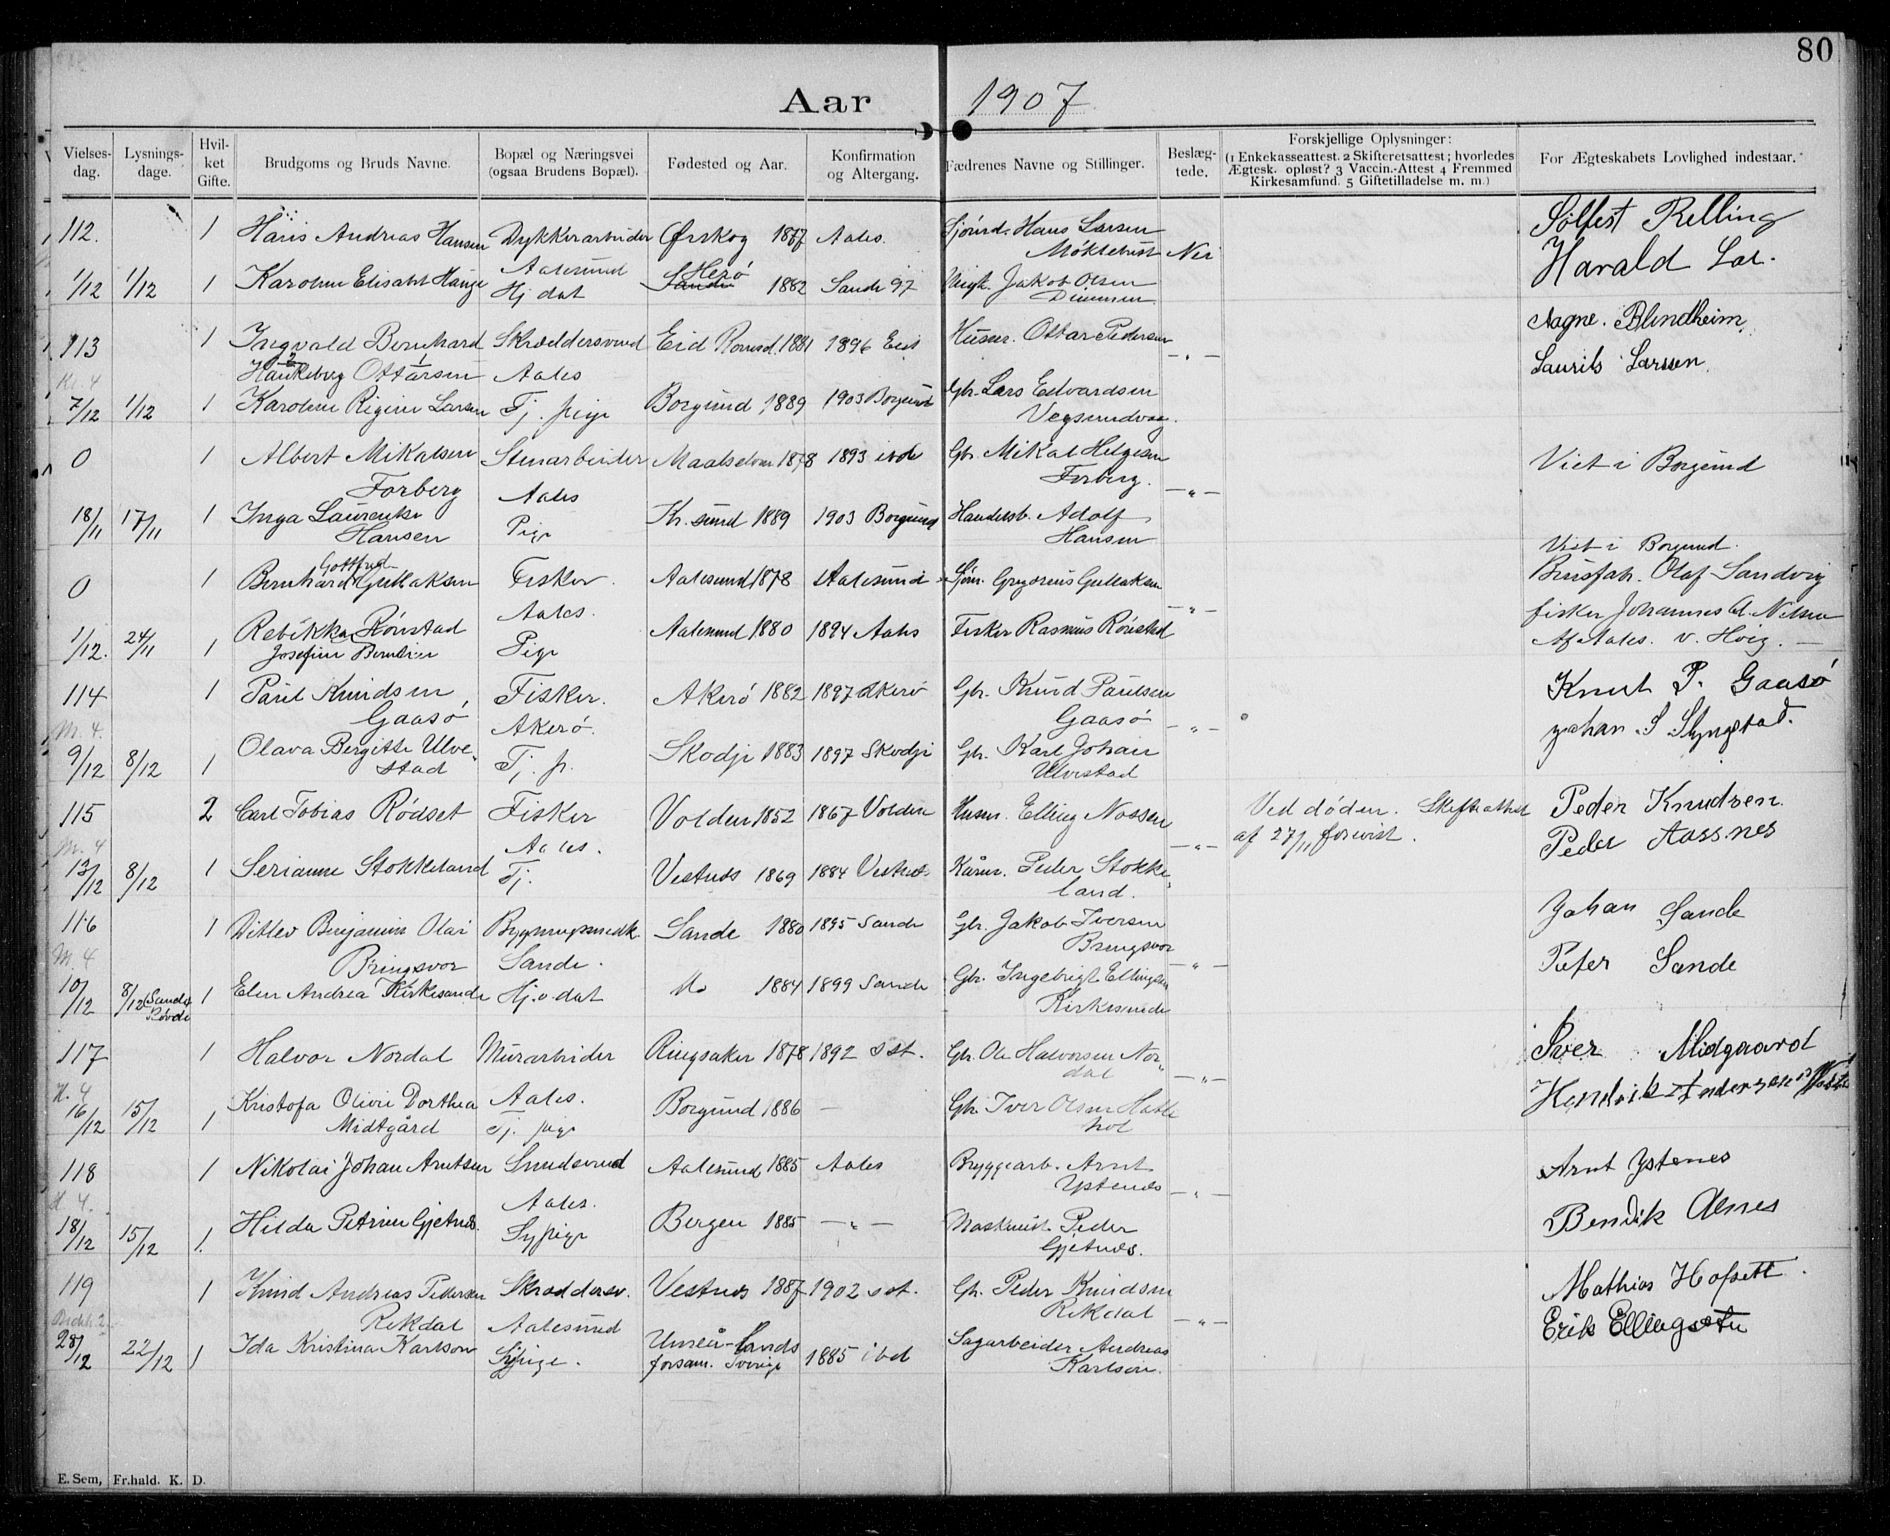 80
Aar 1907
Vielses-dag. Lysnings-dage. Hvil-ket Gifte. Brudgoms og Bruds Navne. Bopæl og Næringsvei (ogsaa Brudens Bopæl). Fødested og Aar. Konfirmation og Altergang. Fædrenes Navne og Stillinger. Beslæg-tede. Forskjellige Oplysninger: (1 Enkekasseattest. 2 Skifteretsattest; hvorledes Ægtesk. opløst? 3 Vaccin.-Attest 4 Fremmed Kirkesamfund. 5 Giftetilladelse m. m.) For Ægteskabets Lovlighed indestaar.
112. 1 Hans Andreas Hansen Dykkerarbeider Ørskog 1887 Aales. Sjömd. Hans Larsen Sølfest Relling
Aalesund Møklebust Nei
1/12 1/12 1 Karoline Elisabet Hauge Hj dat Sande Herö 1882 Sande 97 Jakob Olsen Harald Lar.
113 1 Ingvald Bernhard Skræddersvend Eid Romsd. 1881 1896 Eid Husm. Ottar Pedersen Aagne. Blindheim
Haukeberg Ottarsen Aales -"- Laurits Larsen
7/12 1/12 1 Karoline Regine Larsen Tj. pige Borgund 1889 1903 Borgund Gbr. Lars Edvardsen
Vegsundvaag.
0 1 Albert Mikalsen Stenarbeider Maalselven 1878 1893 ibd Gbr. Mikal Helgesen Viet i Borgund
Forberg Aales Forberg. -"-
18/11 17/11 1 Inga Laurense Pige Kr. sund 1889 1903 Borgund Handelsb. Adolf
Hansen Hansen
Gottfred Viet i Borgund.
0 1 Bernhard Gullaksen Fisker. Aalesund 1878 Aalesund Sjöm. Gregorius Gullaksen Olaf Sandvig
Aales. -"- fisker Johannes A. Nilsen
1/12. 24/11 1 Rebekka Rönstad Pige Aalesund 1880 1894 Aales Fisker Rasmus Rönstad Af Aales. v. Hoig.
Josefine Berntine
114 1 Paul Knudsen Fisker. Akerö 1882 1897 Akerö Gbr. Knud Paulsen Knut P. Gaasö
M. 4. Gaasö Akerö. Gaasö -"- Johan S Slyngstad.
9/12 8/12 1 Olava Bergitte Ulve- Tj. p. Skodje 1883 1897 Skodje Gbr. Karl Johan
stad Ulvestad
115 2 Carl Tobias Rødset Fisker Volden 1852 1867 Volden Husm. Elling Nossen Ved døden. Skifteattest Peder Knudsen
M. 4 Aales. -"- af 27/11 forevist. Peder Aassnes
13/12 8/12 1 Serianne Stokkeland Tj. Vestnes 1869 1884 Vestnes Kårm. Peder Stokke-
land.
116 1 Ditlev Benjamin Olai Bygningssnedk. Sande 1880 1895 Sande Gbr. Jakob Iversen Johan Sande
M. 4 Bringsvor Sande. Bringsvor -"- Peter Sande
10/12 8/12 Sande Røvde 1 Elen Andrea Kirkesande Hj. v. dat 1884 1899 Sande Gbr. Ingebrigt Ellingsen
Kirkesande
117 1 Halvor Nordal Murarbeider Ringsaker 1878 1892 sst. Gbr. Ole Halvorsen Nor- Iver Midgaard
H. 4 dal -"-
16/12 15/12 1 Kristofa Olive Dorthea Aales. Borgund 1886 — Gbr. Iver Olsen Hatle- Hendrik Andersen
Midtgård Tj. pige hol
118 1 Nikolai Johan Arntsen Smedsvend Aalesund 1885 Aales Bryggearb. Arnt Arnt Ystenes
H 4. Aales. Ystenes -"-
18/12 15/12 1. Hilda Petrine Gjetnes. Sypige Bergen 1885 -"- Maskinist Peder Bendik Alnes
Gjetnes.
119 1 Knud Andreas Pedersen Skræddersv. Vestnes 1887 1902 sst. Gbr. Peder Knudsen Mathias Hofsett.
Rekdal Aalesund Rekdal -"- Erik Ellingsæter
28/12 22/12 1 Ida Kristina Karlson Sypige. Umeå-Lands 1885 ibd Sagarbeider Andreas
forsam. Sverige Karlson.
E. Sem, Fr.hald. K. D.